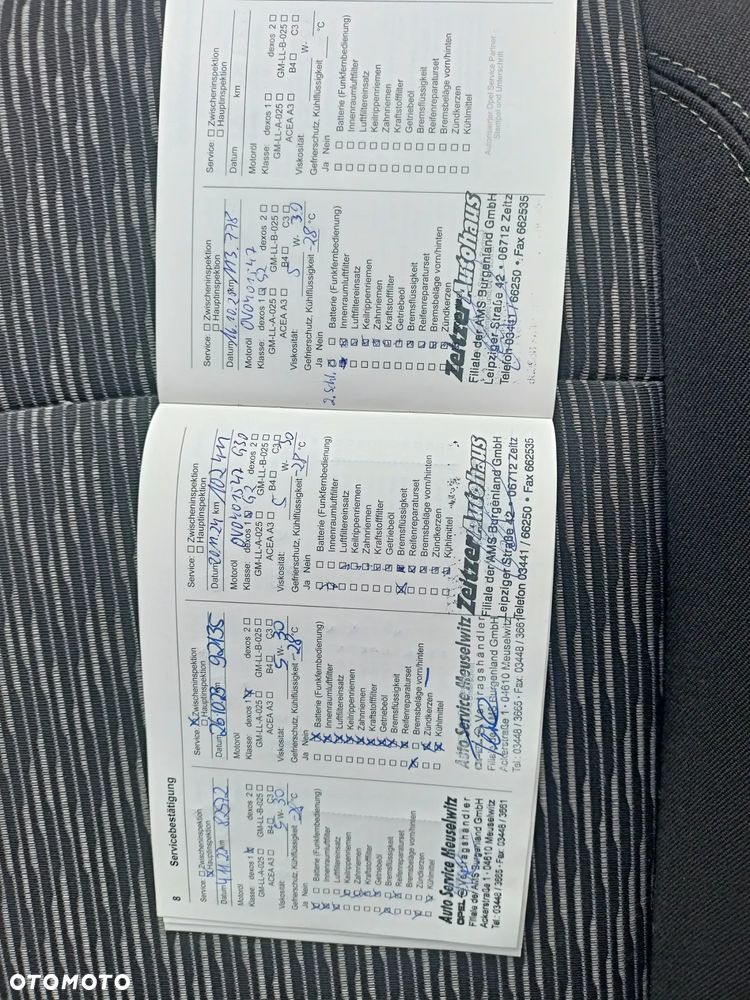 8
Servicebestätigung
Service: Zwischeninspektion
Hauptinspektion
Datum km
Motoröl
Klasse: dexos 1 dexos 2
GM-LL-A-025 GM-LL-B-025
ACEA A3 B4 C3
Viskosität: 5 W- 30
Gefrierschutz, Kühlflüssigkeit -28 °C
Ja Nein
Batterie (Funkfernbedienung)
Innenraumluftfilter
Luftfiltereinsatz
Keilrippenriemen
Zahnriemen
Kraftstofffilter
Getriebeöl
Bremsflüssigkeit
Reifenreparaturset
Bremsbeläge vorn/hinten
Zündkerzen
Kühlmittel
Auto Service Meuselwitz
OPEL Vertragshändler
Filiale der AMS Burgenland GmbH
Ackerstraße 1 · 04610 Meuselwitz
Tel.: 03448 / 3665 · Fax: 03448 / 3661
Service: Zwischeninspektion
Hauptinspektion
Datum 26.10.23 km 92135
Motoröl
Klasse: dexos 1 dexos 2
GM-LL-A-025 GM-LL-B-025
ACEA A3 B4 C3
Viskosität: 5 W- 30
Gefrierschutz, Kühlflüssigkeit -28 °C
Ja Nein
Batterie (Funkfernbedienung)
Innenraumluftfilter
Luftfiltereinsatz
Keilrippenriemen
Zahnriemen
Kraftstofffilter
Getriebeöl
Bremsflüssigkeit
Reifenreparaturset
Bremsbeläge vorn/hinten
Zündkerzen
Kühlmittel
Auto Service Meuselwitz
Vertragshändler
Burgenland GmbH
Ackerstraße 1 · 04610 Meuselwitz
Tel.: 03448 / 3665 · Fax: 03448 / 3661
Service: Zwischeninspektion
Hauptinspektion
Datum km 102411
Motoröl 0V0401547 G30
Klasse: dexos 1 G2 dexos 2
GM-LL-A-025 GM-LL-B-025
ACEA A3 B4 C3
Viskosität: 5 W- 30
Gefrierschutz, Kühlflüssigkeit -28 °C
Ja Nein
Batterie (Funkfernbedienung)
Innenraumluftfilter
Luftfiltereinsatz
Keilrippenriemen
Zahnriemen
Kraftstofffilter
Getriebeöl
Bremsflüssigkeit
Reifenreparaturset
Bremsbeläge vorn/hinten
Zündkerzen
Kühlmittel
Zeitzer Autohaus
Filiale der AMS Burgenland GmbH
Leipziger Straße 42 • 06712 Zeitz
Telefon 03441 / 66250 • Fax 662535
Service: Zwischeninspektion
Hauptinspektion
Datum km 113.778
Motoröl 0V0401547
Klasse: dexos 1 G2 dexos 2
GM-LL-A-025 GM-LL-B-025
ACEA A3 B4 C3
Viskosität: 5 W- 30
Gefrierschutz, Kühlflüssigkeit -28 °C
Ja Nein
2. Schl. Batterie (Funkfernbedienung)
Innenraumluftfilter
Luftfiltereinsatz
Keilrippenriemen
Zahnriemen
Kraftstofffilter
Getriebeöl
Bremsflüssigkeit
Reifenreparaturset
Bremsbeläge vorn/hinten
Zündkerzen
Zeitzer Autohaus
Filiale der AMS Burgenland GmbH
Leipziger Straße 42 • 06712 Zeitz
Telefon 03441 / 66250 • Fax 662535
Service: Zwischeninspektion
Hauptinspektion
Datum km
Motoröl
Klasse: dexos 1 dexos 2
GM-LL-A-025 GM-LL-B-025
ACEA A3 B4 C3
Viskosität: W-
Gefrierschutz, Kühlflüssigkeit °C
Ja Nein
Batterie (Funkfernbedienung)
Innenraumluftfilter
Luftfiltereinsatz
Keilrippenriemen
Zahnriemen
Kraftstofffilter
Getriebeöl
Bremsflüssigkeit
Reifenreparaturset
Bremsbeläge vorn/hinten
Zündkerzen
Kühlmittel
Autorisierter Opel Service Partner
Stempel und Unterschrift
OTOMOTO